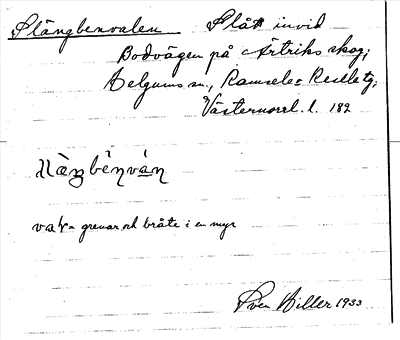 Slängbenvalen Slått invid
Bodvägen på Artriks skog;
Helgums sn., Ramsele o Resele tg;
Västernorrl. l. 182
val- grenar och bråte i en myr
Sven Hiller 1933